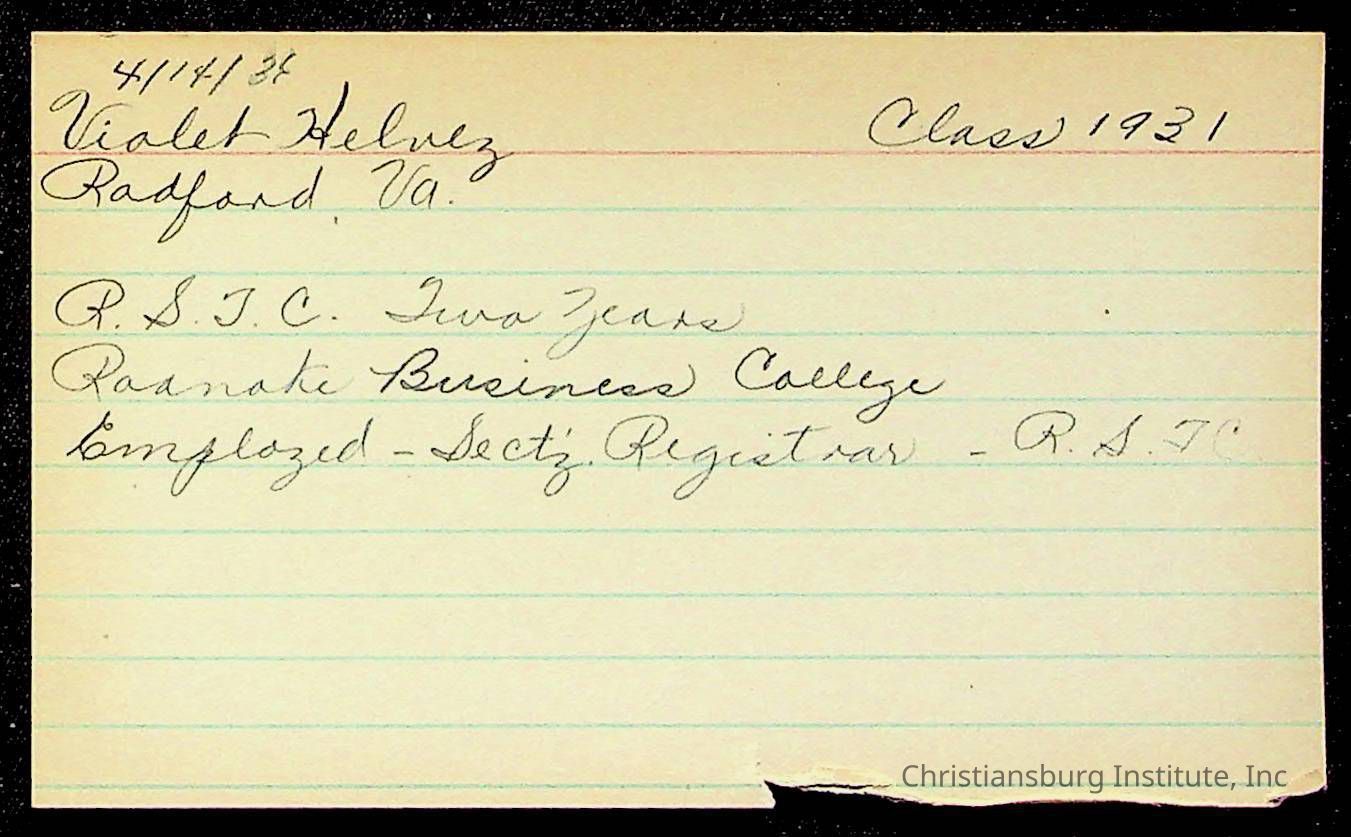 4/14/36
Violet Helvey Class 1931
Radford, Va.
R. S. T. C. Two Years
Roanoke Business College
Employed - Sect'y. Registrar - R. S. T C
Christiansburg Institute, Inc